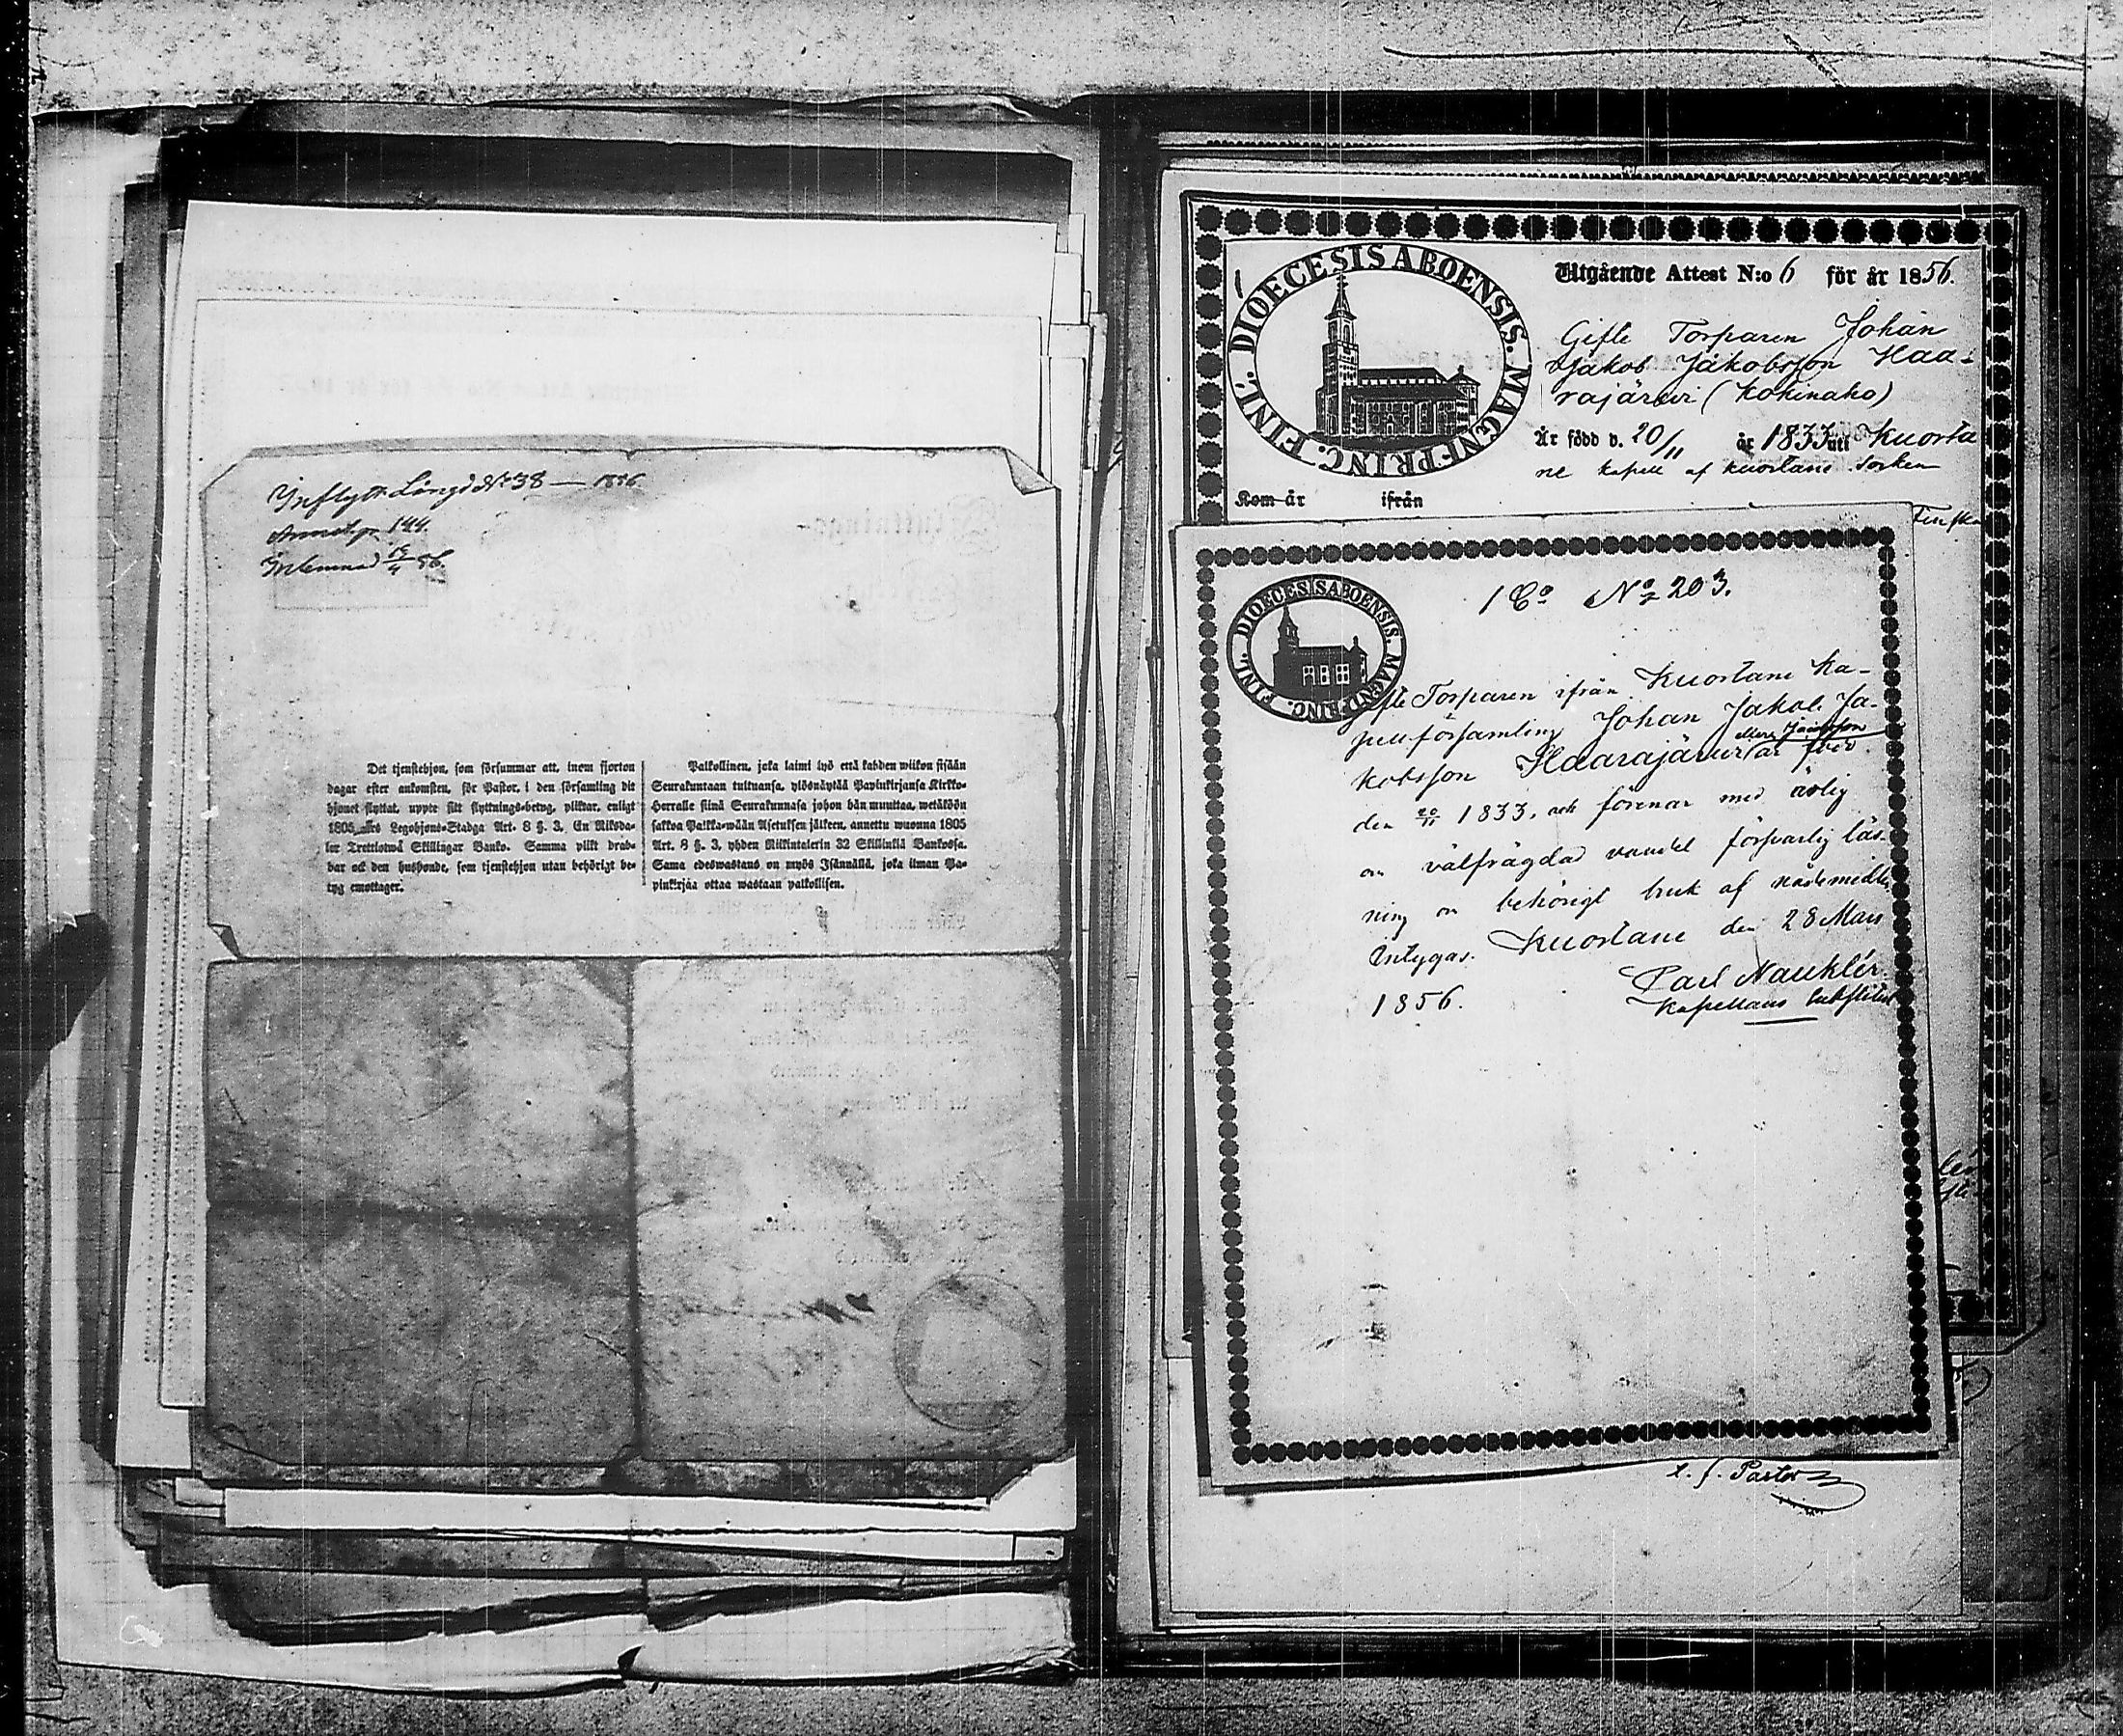 Inflytt. Längd № 38 — 1856
pag. 144.
Inlemnad 19/4 56.
Det tjenstehjon, som försummar att, inom fjorton
dagar efter ankomsten, för Pastor, i den församling dit
hjonet flyttat, uppte sitt flyttnings-betyg, pliktar, enligt
1805 års Legohjons-Stadga Art. 8 §. 3, En Riksda-
ler Trettiotwå Skillingar Banko. Samma plikt drab-
bar ock den husbonde, som tjenstehjon utan behörigt be-
tyg emottager.
Palkollinen, joka laimi lyö että kahden wiikon sisään
Seurakuntaan tultuansa, ylösnäytää Papinkirjansa Kirkko-
Herralle siinä Seurakunnasa johon hän muuttaa, wetäköön
sakkoa Palkka-wään Asetuksen jälkeen, annettu wuonna 1805
Art. 8 §. 3, yhden Riikintalerin 32 Skillinkiä Bankossa.
Sama edeswastaus on myös Isännällä, joka ilman Pa-
pinkirjaa ottaa wastaan palkollisen.
DIOECESIS ABOENSIS. MAGNI PRINC. FINL.
Utgående Attest N:o 6 för år 1856.
Gifte Torparen Johan
Jakob Jakobsson Haa-
rajärwi (Kokinaho)
Är född d. 20/11 år 1833 uti Kuorta
ne kapell af Kuortane Socken
Kom år ifrån
Finska
DIOECESIS ABOENSIS. MAGNI PRINC. FINL.
1 C:o N:o 203.
Gifte Torparen ifrån Kuortane Ka-
pellförsamling Johan Jakob Ja-
kobsson Haarajärwi är född
den 20/11 1833, och förenar med ärlig
och välfrägdad vandel försvarlig läs-
ning och behörigt bruk af nådemedlen,
Intygas. Kuortane den 28 Mars
1856. Carl Nauklér.
Kapellans Substitut
v. f. Pastor